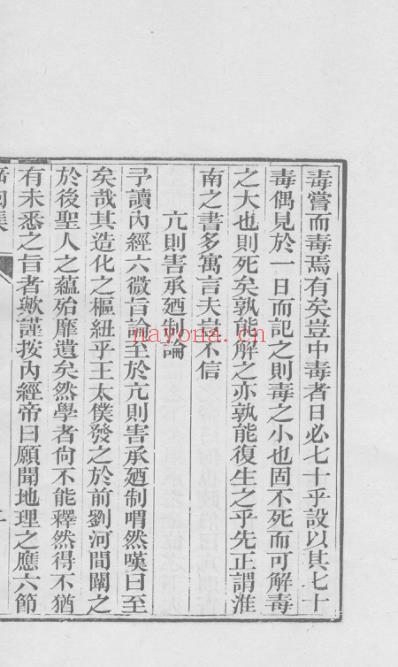 毒嘗而毒焉有矣豈中毒者日必七十乎設以其七十
毒偶見於一日而記之則毒之小也固不死而可解毒
之大也則死矣孰能解之亦孰能復生之乎先正謂淮
南之書多寓言夫豈不信
亢則害承廼制論
予讀內經六微旨論至於亢則害承廼制喟然嘆曰至
矣哉其造化之樞紐乎王太僕發之於前劉河間闡之
於後聖人之蘊殆靡遺矣然學者尙不能釋然得不猶
有未悉之旨者歟謹按內經帝曰願聞地理之應六節
nayona.cn